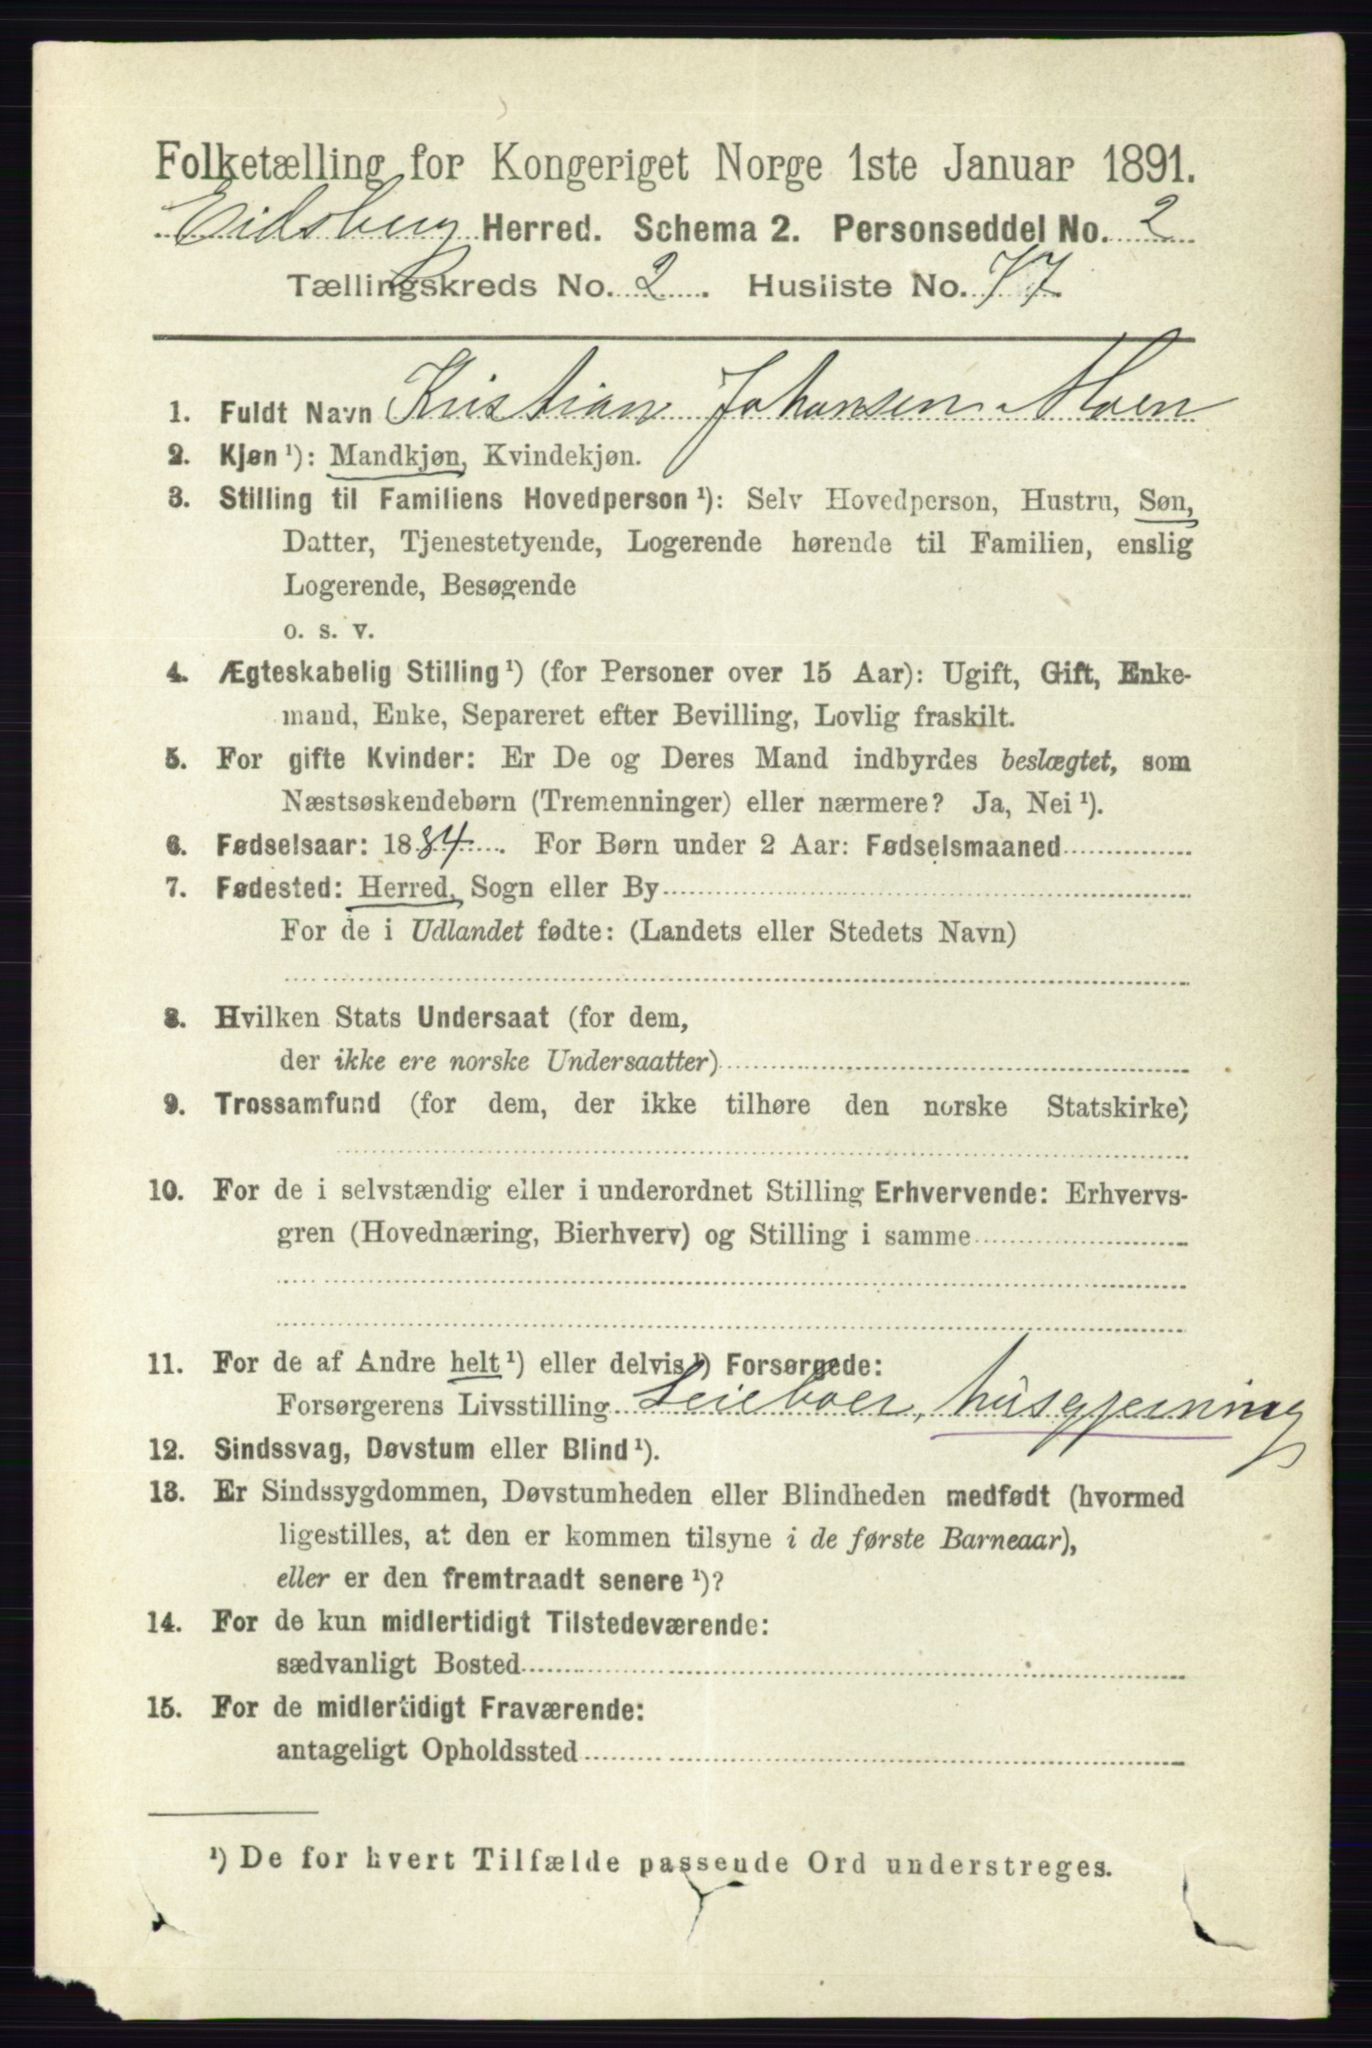 Folketælling for Kongeriget Norge 1ste Januar 1891.
Eidsberg Herred. Schema 2. Personseddel No. 2
Tællingskreds No. 2. Husliste No. 77.
1. Fuldt Navn Kristian Johansen Moen
2. Kjøn ¹): Mandkjøn, Kvindekjøn.
3. Stilling til Familiens Hovedperson ¹): Selv Hovedperson, Hustru, Søn,
Datter, Tjenestetyende, Logerende hørende til Familien, enslig
Logerende, Besøgende
o. s. v.
4. Ægteskabelig Stilling ¹) (for Personer over 15 Aar): Ugift, Gift, Enke-
mand, Enke, Separeret efter Bevilling, Lovlig fraskilt.
5. For gifte Kvinder: Er De og Deres Mand indbyrdes beslægtet, som
Næstsøskendebørn (Tremenninger) eller nærmere? Ja, Nei ¹).
6. Fødselsaar: 1884. For Børn under 2 Aar: Fødselsmaaned
7. Fødested: Herred, Sogn eller By
For de i Udlandet fødte: (Landets eller Stedets Navn)
8. Hvilken Stats Undersaat (for dem,
der ikke ere norske Undersaatter)
9. Trossamfund (for dem, der ikke tilhøre den norske Statskirke)
10. For de i selvstændig eller i underordnet Stilling Erhvervende: Erhvervs-
gren (Hovednæring, Bierhverv) og Stilling i samme
11. For de af Andre helt ¹) eller delvis ¹) Forsørgede:
Forsørgerens Livsstilling Leieboer, husgjerning
12. Sindssvag, Døvstum eller Blind ¹).
13. Er Sindssygdommen, Døvstumheden eller Blindheden medfødt (hvormed
ligestilles, at den er kommen tilsyne i de første Barneaar),
eller er den fremtraadt senere ¹)?
14. For de kun midlertidigt Tilstedeværende:
sædvanligt Bosted
15. For de midlertidigt Fraværende:
antageligt Opholdssted
¹) De for hvert Tilfælde passende Ord understreges.